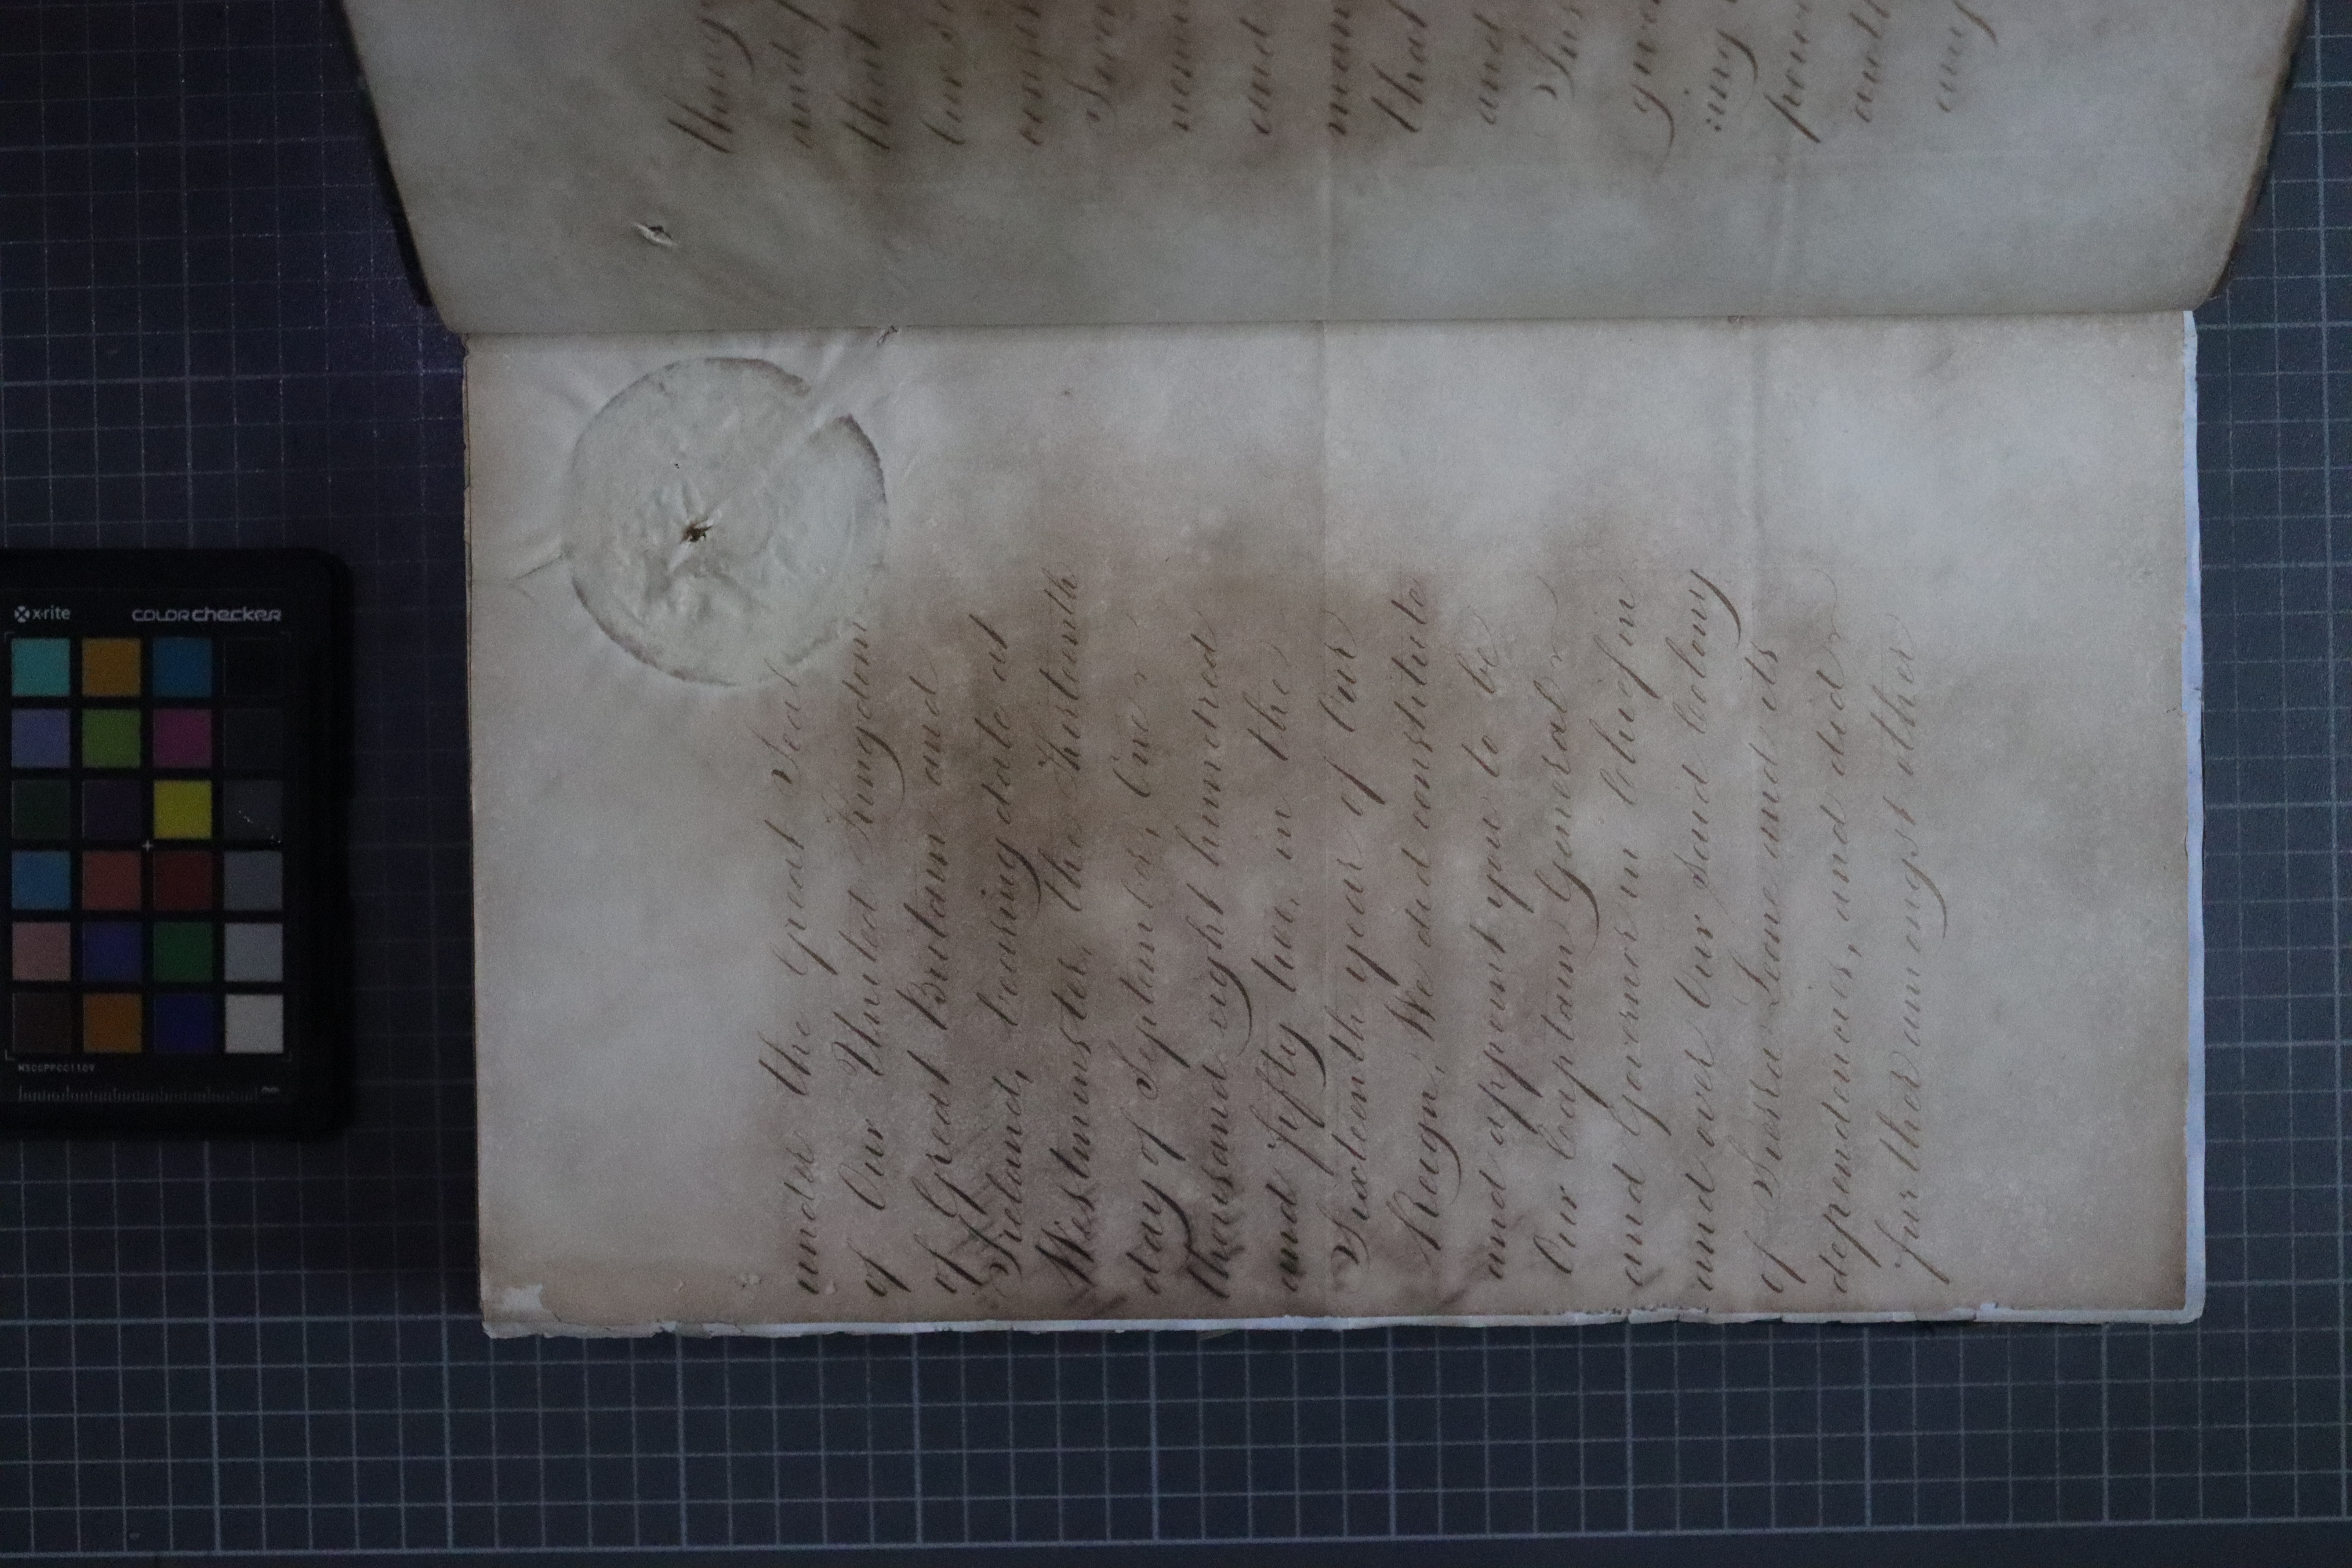 under the Great Seal
of Our United Kingdom
of Great Britain and
Ireland, bearing date at
Westminster, the Thirteenth
day of September, One
thousand eight hundred
and fifty two, in the
Sixteenth year of Our
Reign, We did constitute
and appoint you to be
Our Captain General
and Governor in Chief in
and over Our said Colony
of Sierra Leone and its
dependencies, and did
further amongst other
that
and
mean
that
and
power
any
x-rite
COLOR checker